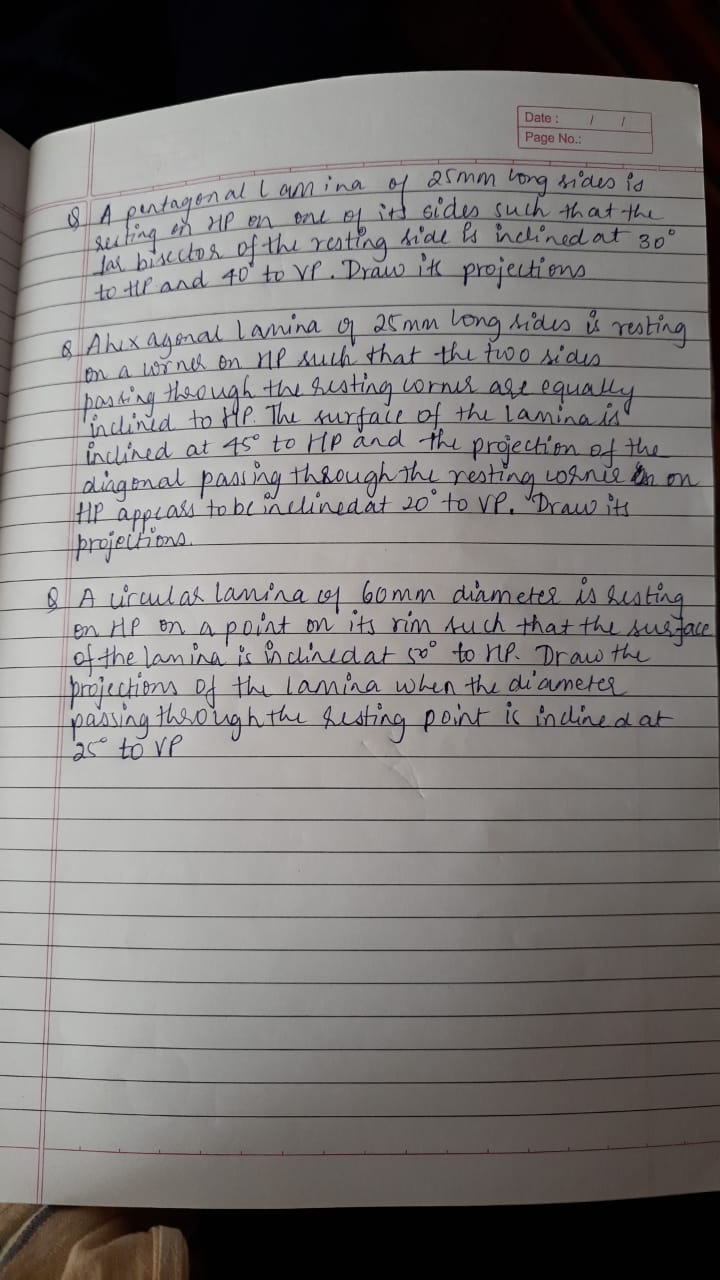 Date : / /
Page No.:
Q A pentagonal Lamina of 25mm long sides is
resting on HP on one of its sides such that the
Lar bisector of the resting side is inclined at 30°
to HP and 40° to VP. Draw its projections
Q A hexagonal lamina of 25mm long sides is resting
on a corner on HP such that the two sides
passing through the resting corner are equally
inclined to HP. The surface of the lamina is
inclined at 45° to HP and the projection of the
diagonal passing through the resting corner on
HP appears to be inclined at 20° to VP. Draw its
projections.
Q A circular lamina of 60mm diameter is resting
on HP on a point on its rim such that the surface
of the lamina is inclined at 50° to HP. Draw the
projections of the lamina when the diameter
passing through the resting point is inclined at
25° to VP